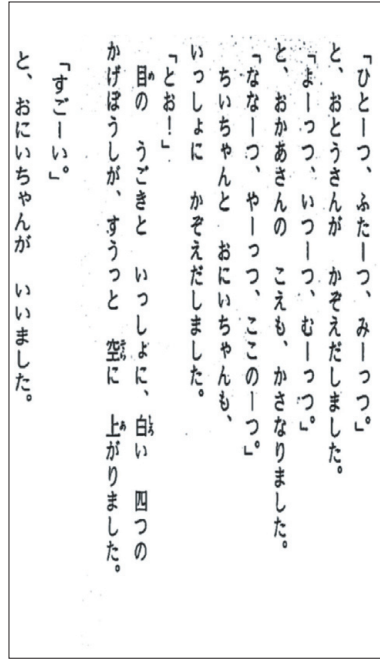 「ひとーつ、ふたーつ、みーっつ。」
と、おとうさんが かぞえだしました。
「よーっつ、いつーつ、むーっつ。」
と、おかあさんの こえも、かさなりました。
「ななーつ、やーっつ、ここのーつ。」
ちいちゃんと おにいちゃんも、
いっしょに かぞえだしました。
「とお！」
目の うごきと いっしょに、白い 四つの
かげぼうしが、すうっと 空に 上がりました。
「すごーい。」
と、おにいちゃんが いいました。